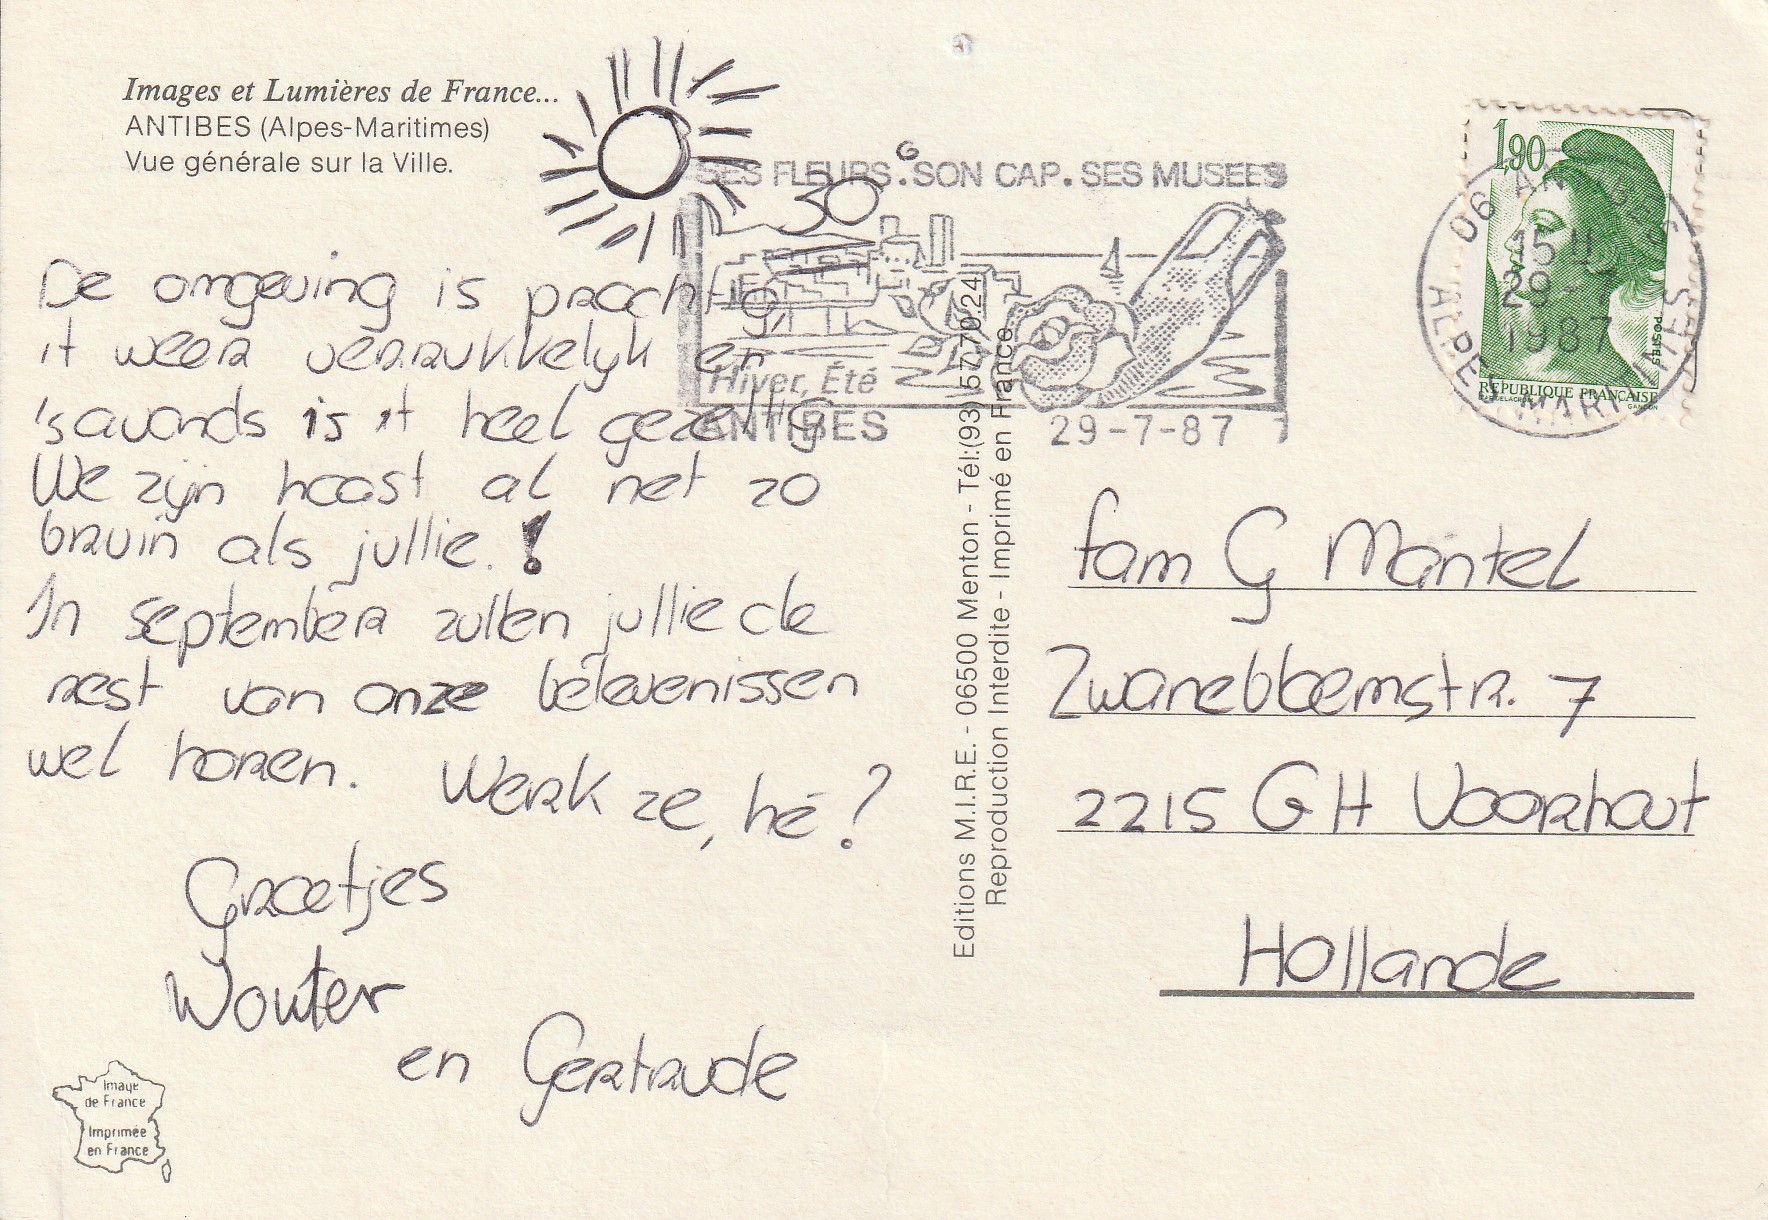 Images et Lumières de France...
ANTIBES (Alpes-Maritimes)
Vue générale sur la Ville.
30°
De omgeving is prachtig,
't weer verrukkelijk en
's avonds is 't heel gezellig
We zijn haast al net zo
bruin als jullie. !
In september zullen jullie de
rest van onze belevenissen
wel horen. Werk ze, hé?
Groetjes
Wouter
en Gertrude
Image
de France
Imprimée
en France
Editions M.I.R.E. - 06500 Menton - Tél:(93) 57.70.24
Reproduction Interdite - Imprimé en France
SES FLEURS. SON CAP. SES MUSEES
Hiver, Été
ANTIBES 29-7-87
1,90
POSTES
REPUBLIQUE FRANÇAISE
GANDON
06 ANTIBES
15 H
29-7
1987
ALPES MARITIMES
fam G Mantel
Zwanebloemstr. 7
2215 GH Voorhout
Hollande